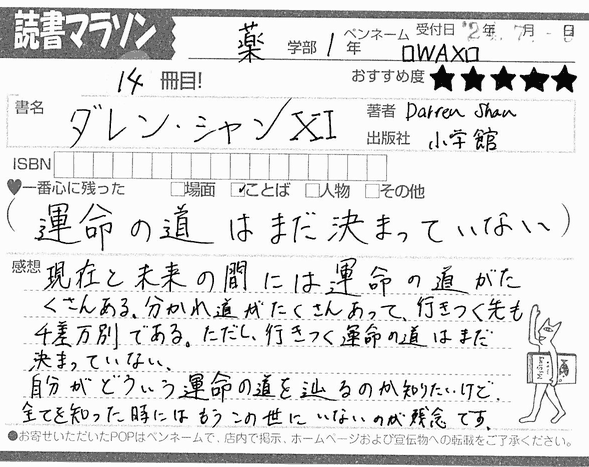 読書マラソン
薬 学部 1 年
ペンネーム
□WAX□
受付日 '2 年 7 月 日
14 冊目!
おすすめ度 ★★★★★
書名
ダレン・シャン XI
著者 Darren Shan
出版社 小学館
ISBN
♥一番心に残った □場面 ☑ことば □人物 □その他
(運命の道はまだ決まっていない)
感想
現在と未来の間には運命の道がた
くさんある。分かれ道がたくさんあって、行きつく先も
千差万別である。ただし、行きつく運命の道はまだ
決まっていない、
自分がどういう運命の道を辿るのか知りたいけど、
全てを知った時にはもうこの世にいないのが残念です。
●お寄せいただいたPOPはペンネームで、店内で掲示、ホームページおよび宣伝物への転載をご了承ください。